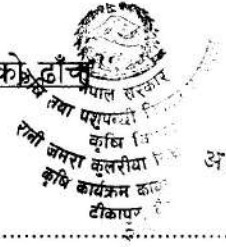 को ढाँचा
नेपाल सरकार
कृषि तथा पशुपन्छी
कृषि
रानी जमरा कुलरीया
कृषि कार्यक्रम
टीकापुर
अ